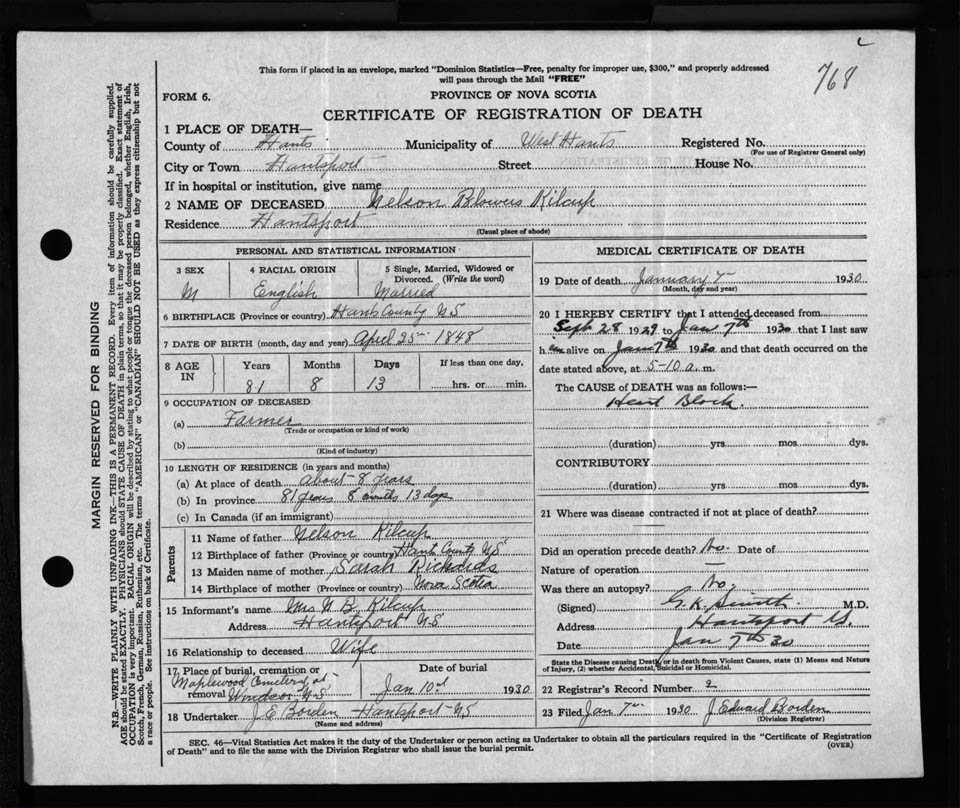 768
This form if placed in an envelope, marked "Dominion Statistics—Free, penalty for improper use, $300," and properly addressed
will pass through the Mail "FREE"
FORM 6.
PROVINCE OF NOVA SCOTIA
CERTIFICATE OF REGISTRATION OF DEATH
1 PLACE OF DEATH—
County of Hants Municipality of West Hants Registered No.
(For use of Registrar General only)
City or Town Hantsport Street House No.
If in hospital or institution, give name
2 NAME OF DECEASED Nelson Blowers Kilcup
Residence Hantsport
(Usual place of abode)
PERSONAL AND STATISTICAL INFORMATION
3 SEX 4 RACIAL ORIGIN 5 Single, Married, Widowed or
Divorced. (Write the word)
M English Married
6 BIRTHPLACE (Province or country) Hants County N.S
7 DATE OF BIRTH (month, day and year) April 25 1848
8 AGE IN Years Months Days If less than one day,
81 8 13 hrs. or min.
9 OCCUPATION OF DECEASED
(a) Farmer
(Trade or occupation or kind of work)
(b)
(Kind of industry)
10 LENGTH OF RESIDENCE (in years and months)
(a) At place of death about 8 years
(b) In province 81 years 8 months 13 days
(c) In Canada (if an immigrant)
Parents
11 Name of father Nelson Kilcup
12 Birthplace of father (Province or country) Hants County N.S
13 Maiden name of mother Sarah
14 Birthplace of mother (Province or country) Nova Scotia
15 Informant's name Mrs N B Kilcup
Address Hantsport N.S
16 Relationship to deceased Wife
17 Place of burial, cremation or Date of burial
Maplewood Cemetery at
removal Windsor N.S Jan 10 1930
18 Undertaker J E Borden Hantsport N.S
(Name and address)
MEDICAL CERTIFICATE OF DEATH
19 Date of death January 7 1930
(Month, day and year)
20 I HEREBY CERTIFY that I attended deceased from
Sept 28 1929 to Jan 7th 1930 that I last saw
him alive on Jan 7th 1930 and that death occurred on the
date stated above, at 5-10 a. m.
The CAUSE of DEATH was as follows:—
Heart Block.
(duration) yrs mos dys.
CONTRIBUTORY
(duration) yrs. mos. dys.
21 Where was disease contracted if not at place of death?
Did an operation precede death? No. Date of
Nature of operation —
Was there an autopsy? No.
(Signed) G. K. Smith M.D.
Address Hantsport N.S.
Date Jan 7th 30
State the Disease causing Death, or in death from Violent Causes, state (1) Means and Nature
of Injury, (2) whether Accidental, Suicidal or Homicidal.
22 Registrar's Record Number 2
23 Filed Jan 7 1930 J. Edward Borden
(Division Registrar)
SEC. 46—Vital Statistics Act makes it the duty of the Undertaker or person acting as Undertaker to obtain all the particulars required in the "Certificate of Registration
of Death" and to file the same with the Division Registrar who shall issue the burial permit.
(OVER)
MARGIN RESERVED FOR BINDING
N.B.—WRITE PLAINLY WITH UNFADING INK—THIS IS A PERMANENT RECORD. Every item of information should be carefully supplied.
AGE should be stated EXACTLY. PHYSICIANS should STATE CAUSE OF DEATH in plain terms, so that it may be properly classified. Exact statement of
OCCUPATION is very important. RACIAL ORIGIN will be described by stating to what people or tongue the deceased person belonged, whether English, Irish,
Scotch, French, German, Russian, Ruthenian, etc. The terms "AMERICAN" or "CANADIAN" SHOULD NOT BE USED as they express citizenship but not
a race or people. See instructions on back of Certificate.